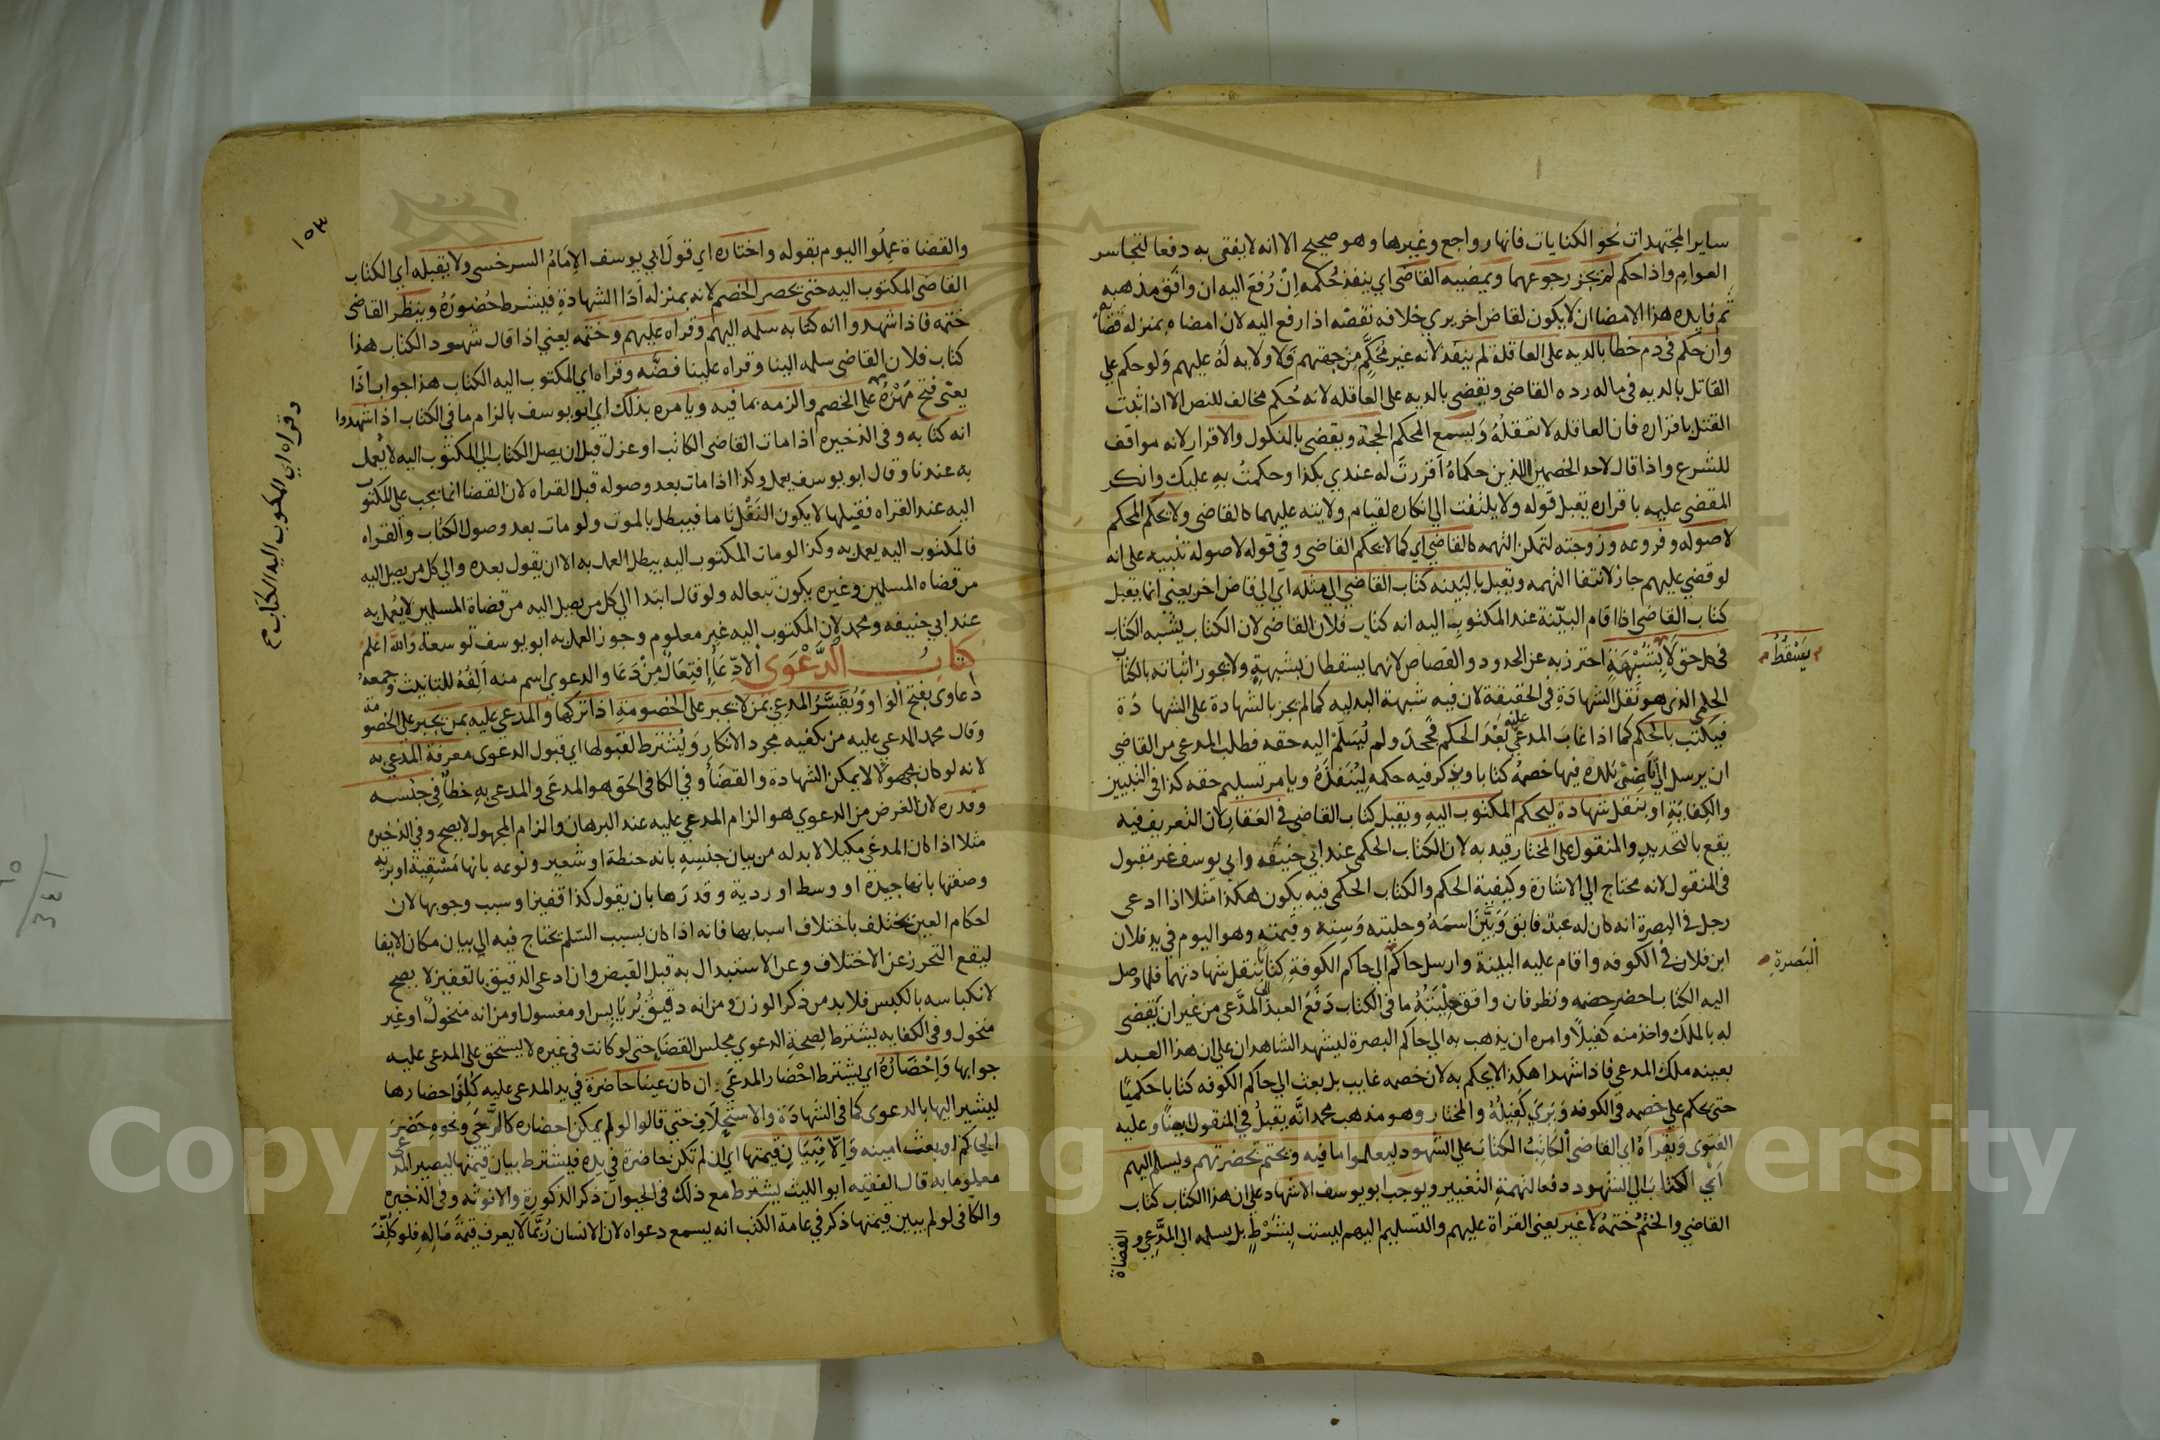 ساير المجتهدات نحو الكنايات فانها رواجع وغيرها وهو صحيح الا انه لا يفتى به دفعا لتجاسر
العوام واذا حكم لم يجز رجوعهما ويمضيه القاضى اي ينفذ حكمه ان رفع اليه ان وافق مذهبه
ثم فايده هذا الامضا ان لا يكون لقاض اخر يري خلافه نقضه اذا رفع اليه لان امضاه بمنزلة قضاء
وان حكم في دم خطا بالديه على العاقلة لم ينفذ لانه غير محكم من جهتهم ولا ولايه له عليهم ولو حكم علي
القاتل بالديه في ماله رده القاضى ويقضى بالديه على العاقله لانه حكم مخالف للنص الا اذا ثبت
القتل باقراره فان العاقله لا تعقله ويسمع المحكم الحجة ويقضى بالنكول والاقرار لانه موافق
للشرع واذا قال لاحد الخصمين اللذين حكماه اقررت له عندي بكذا وحكمت به عليك وانكر
المقضى عليه باقراره يقبل قوله ولا يلتفت الي انكاره لقيام ولايته عليهما كالقاضى ولا يحكم المحكم
لاصوله وفروعه وزوجته لتمكن التهمه كالقاضى اي كما لا يحكم القاضى وفي قوله لاصوله تنبيه على انه
لو قضي عليهم جاز لانتفا التهمه ويقبل بالبينه كتاب القاضي الي مثله اي الي قاض اخر يعني انما يقبل
كتاب القاضى اذا اقام البينة عند المكتوب اليه انه كتاب فلان القاضى لان الكتاب يشبه الكتاب
في كل حق لا بشبهة احترز به عن الحدود والقصاص لانهما يسقطان بشبهة ولا يجوز اثباته بالكتاب
يسقط
الحكمي الذي هو نقل الشهادة في الحقيقة لان فيه شبهة البدليه كما لم يجز بالشهادة على الشهادة
فيكتب بالحكم كما اذا غاب المدعي عليه بعد الحكم فجحد ولم يسلم اليه حقه فطلب المدعى من القاضي
ان يرسل الي قاضى بلده فيها خصمه كتابا ويذكر فيه حكمه لينفذه ويامر تسليم حقه كذا في التبيين
والكفاية او بنقل شهادة ليحكم المكتوب اليه ويقبل كتاب القاضى في العقار لان التعريف فيه
يقع بالتحديد والمنقول على المختار قيد به لان الكتاب الحكمى عند ابي حنيفه وابي يوسف غير مقبول
في المنقول لانه محتاج الي الاشارة وكيفية الحكم والكتاب الحكمى فيه يكون هكذا مثلا اذا ادعى
رجل في البصرة انه كان له عبد فابق وبين اسمه وحليته وسنه وقيمته وهو اليوم في يد فلان
ابن فلان في الكوفه واقام عليه البينة وارسل حاكم الي حاكم الكوفة كتابا بنقل شهادتهما فلما وصل
البصرة
اليه الكتاب احضر خصمه ونظر فان وافق حليته ما في الكتاب دفع العبد الي المدعى من غير ان يقضى
له بالملك واخذ منه كفيلا وامره ان يذهب به الي حاكم البصرة ليشهد الشاهدان على ان هذا العبد
بعينه ملك المدعي فاذا شهدا هكذا لا يحكم به لان خصمه غايب بل بعث الي حاكم الكوفه كتابا حكميا
حتى يحكم على خصمه في الكوفه وبري كفيله والمختار وهو مذهب محمد انه يقبل في المنقول ايضا وعليه
الفتوى ويقراه اي القاضى الكاتب الكتاب على الشهود ليعلموا ما فيه ويختم بحضرتهم ويسلم اليهم
اي الكتاب الي الشهود دفعا لتهمة التغيير ويوجب ابو يوسف الاشهاد على ان هذا الكتاب كتاب
القاضي والختم ختمه لا غير يعنى القراة عليهم والتسليم اليهم ليست بشرط بل يسلمه الي المدعي و
القضاة
١٥٣
والقضاة عملوا اليوم بقوله واختاره اي قول ابي يوسف الامام السرخسى ولا يقبله اي الكتاب
القاضى المكتوب اليه حتى يحضر الخصم لانه بمنزله اداء الشهادة فيشترط حضوره وينظر القاضى
ختمه فاذا شهدوا انه كتابه سلمه اليهم وقراه عليهم وختمه يعني اذا قال شهود الكتاب هذا
كتاب فلان القاضى سلمه الينا وقراه علينا فضه وقراه اي المكتوب اليه الكتاب هذا جواب اذا
يعنى فتح مهره على الخصم والزمه بما فيه ويامره بذلك اي ابو يوسف بالزام ما في الكتاب اذا شهدوا
وقراه اي المكتوب اليه الكتاب
انه كتابه وفى الذخيره اذا مات القاضى الكاتب او عزل قبل ان يصل الكتاب الي المكتوب اليه لا يعمل
به عندنا وقال ابو يوسف يعمل وكذا اذا مات بعد وصوله قبل القراه لان القضا انما يجب على المكتوب
اليه عند القراه فقبلها لا يكون النقل تاما فيبطل بالموت ولو مات بعد وصول الكتاب والقراه
فالمكتوب اليه يعمل به وكذا لو مات المكتوب اليه يبطل العمل به الا ان يقول بعده والي كل من يصل اليه
من قضاه المسلمين وغيره يكون تبعا له ولو قال ابتدا الي كل من يصل اليه من قضاة المسلمين لا يعمل به
عند ابي حنيفه ومحمد لان المكتوب اليه غير معلوم وجوز العمل به ابو يوسف توسعة والله اعلم
كتاب الدعوى الادعاء افتعال من دعا والدعوي اسم منه الفه للتانيث وجمعه
دعاوى بفتح الواو ويفسر المدعي بمن لا يجبر على الخصومة اذا تركها والمدعي عليه بمن يجبر على الخصومة
وقال محمد المدعي عليه من يكفيه مجرد الانكار ويشترط لقبولها اي قبول الدعوى معرفة المدعي به
لانه لو كان مجهولا لا يمكن الشهادة والقضاء وفي الكافى الحق هو المدعى والمدعى به خطا في جنسه
وقدره لان الغرض من الدعوي هو الزام المدعي عليه عند البرهان والزام المجهول لا يصح وفي الذخيره
مثلا اذا كان المدعى مكيلا لا بد له من بيان جنسه بانه حنطة او شعير ونوعه بانها سقية او بريه
وصفتها بانها جيدة او وسط او ردية وقدرها بان يقول كذا قفيزا وسبب وجوبها لان
احكام العين يختلف باختلاف اسبابها فانه اذا كان بسبب السلم يحتاج فيه الي بيان مكان الايفا
ليقع التحرز عن الاختلاف وعن الاستبدال به قبل القبض وان ادعى الدقيق بالقفيز لا يصح
لانكباسه بالكبس فلا بد من ذكر الوزن ومن انه دقيق بر يابس او مغسول او من انه منخول او غير
منخول وفي الكفايه يشترط لصحة الدعوي مجلس القضاء حتى لو كانت في غيره لا يستحق على المدعى عليه
جوابها واحضاره اي يشترط احضار المدعي ان كان عينا حاضرة في يد المدعى عليه كلف احضارها
ليشير اليها بالدعوى كما في الشهادة والاستحلاف حتى قالوا لو لم يمكن احضاره كالرحى ونحوه حضر
الحاكم او بعث امينه والا فبيان قيمتها اي ان لم تكن حاضرة في يده فيشترط بيان قيمتها ليصير المدعى
معلوما به قال الفقيه ابو الليث يشترط مع ذلك في الحيوان ذكر الذكورة والانوثه وفي الذخيره
والكافى لو لم يبين قيمتها ذكر في عامة الكتب انه يسمع دعواه لان الانسان ربما لا يعرف قيمة ماله فلو كلف
Copyright © King Saud University